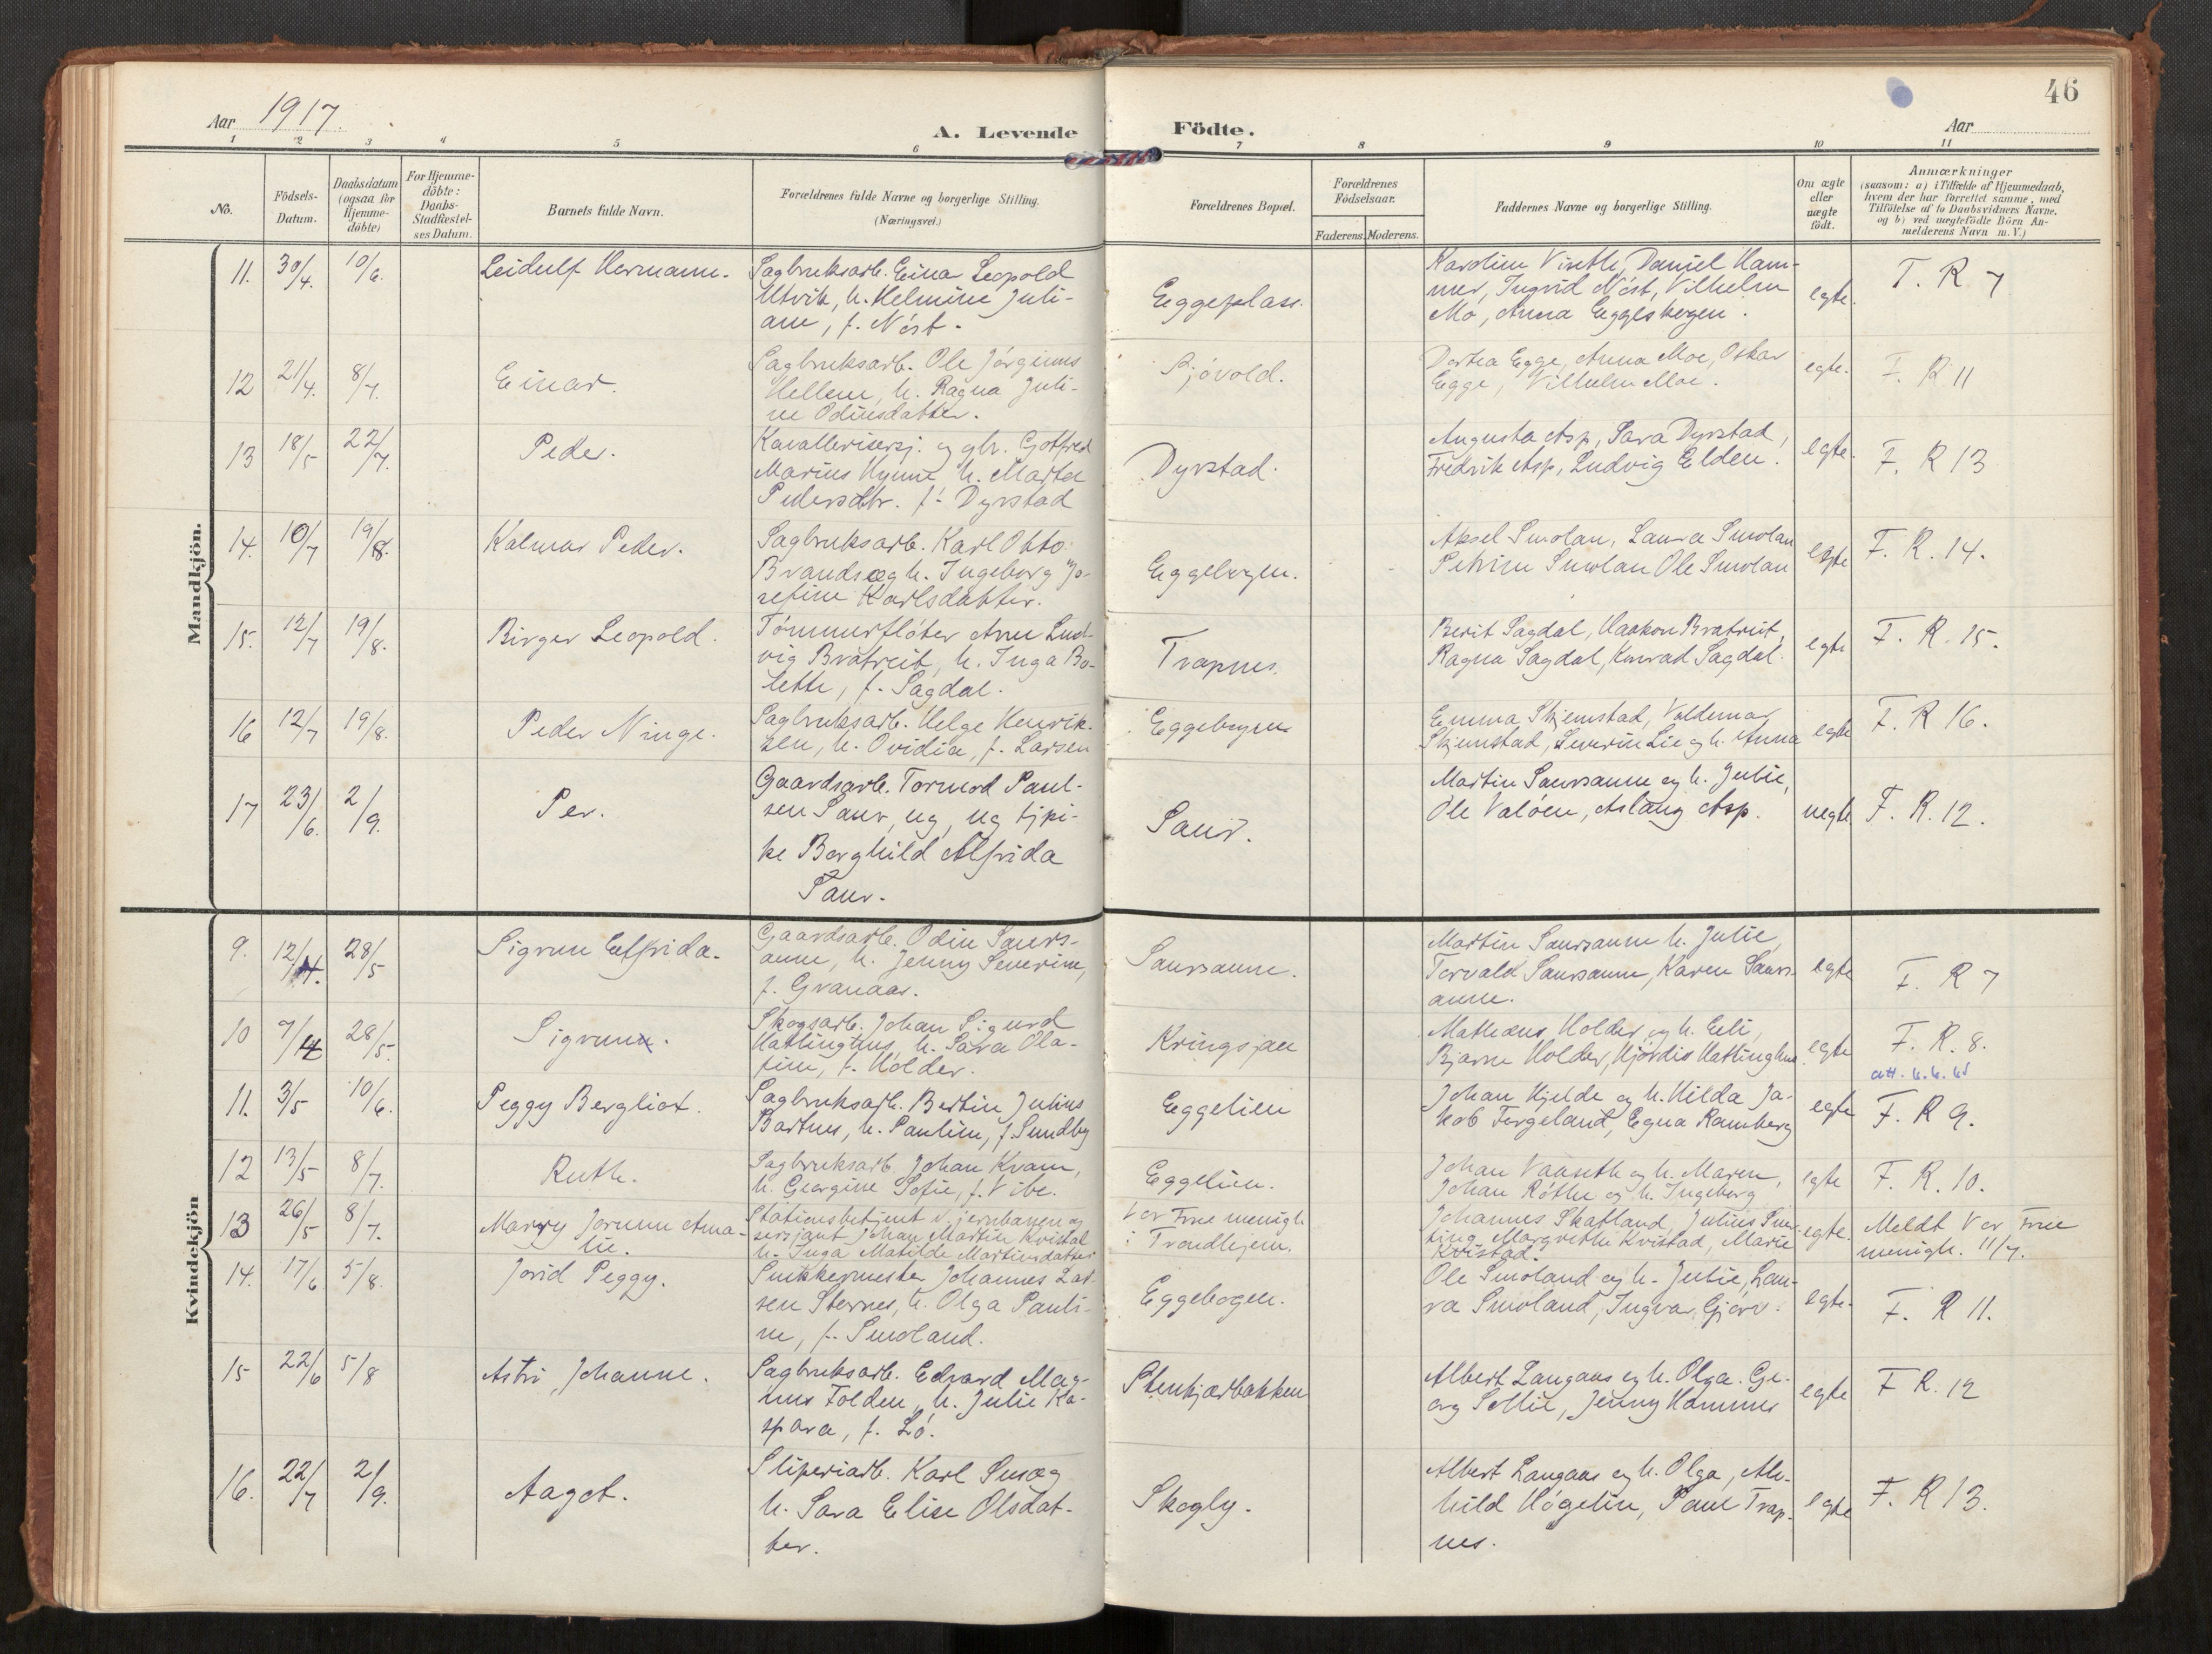 46
Aar 1917.
A. Levende Födte.
Aar
1 2 3 4 5 6 7 8 9 10 11
No.
Födsels-Datum.
Daabsdatum (ogsaa for Hjemmedöbte)
For Hjemmedöbte: Daabs-Stadfæstelses Datum.
Barnets fulde Navn.
Forældrenes fulde Navne og borgerlige Stilling. (Næringsvei.)
Forældrenes Bopæl.
Forældrenes Födselsaar.
Faderens. Moderens.
Faddernes Navne og borgerlige Stilling.
Om ægte eller uægte födt.
Anmærkninger
(saasom: a) i Tilfælde af Hjemmedaab,
hvem der har forrettet samme, med
Tilföielse af to Daabsvidners Navne.
og b) ved uægtefödte Börn Anmelderens Navn m. V.)
Mandkjön.
11. 30/4. 10/6. Leidulf Hermann.
Sagbruksarb. Einar Leopold
Utvik, h. Helmine Juli-
ane, f. Nöst.
Eggeplass.
Karoline Viseth, Daniel Ham-
mer, Ingrid Nöst, Vilhelm
Mo, Anna Eggeskogen.
egte.
F. R 7
12 21/4. 8/7. Einar.
Sagbruksarb. Ole Jörginus
Hellem, h. Ragna Juli-
ne Odinsdatter.
Sjövold.
Dortea Egge, Anna Moe, Oskar
Egge, Vilhelm Moe.
egte.
F. R 11
13 18/5 22/7. Peder.
Kavallerisersj. og gbr. Gotfred
Marius Hynne h. Marta
Pedersdtr. f. Dyrstad
Dyrstad.
Augusta Asp, Sara Dyrstad,
Fredrik Asp, Ludvig Elden.
egte.
F. R 13
14. 10/7 19/8. Kalmar Peder.
Sagbruksarb. Karl Otto
Brandsæg h. Ingeborg Jo-
sefine Karlsdatter.
Eggebogen.
Aksel Smolan, Laura Smolan
Petrine Smolan Ole Smolan
egte
F. R. 14.
15. 12/7 19/8. Birger Leopold.
Tömmerflöter Arne Lud-
vig Bratreit, h. Inga Bo-
lette, f. Sagdal.
Trapnes.
Berit Sagdal, Haakon Bratreit,
Ragna Sagdal, Konrad Sagdal.
egte
F. R. 15.
16 12/7 19/8. Peder Ninge.
Sagbruksarb. Helge Henrik-
sen, h. Ovidia, f. Larsen
Eggebogen
Emma Skjemstad, Valdemar
Skjemstad, Severin Lie og h. Anna
egte
F. R 16.
17 23/6. 2/9. Per.
Gaardsarb. Tormod Paul-
sen Saur, ug, ug tjpi-
ke Borghild Alfrida
Saur.
Saur.
Martin Saursaune og h. Julie,
Ole Valöen, Aslaug Asp.
uegte
F. R. 12.
Kvindekjön
9. 12/4. 28/5 Sigrun Elfrida.
Gaardsarb. Odin Saurs-
aune, h. Jenny Severine,
f. Granaas.
Saursaune.
Martin Saursaune h. Julie,
Torvald Saursaune, Karen Saurs-
aune.
egte
F. R 7
10 7/4 28/5. Sigrun.
Skogsarb. Johan Sigurd
Hatlinghus, h. Sara Ola-
fine, f. Holder.
Kringsjaa
Mathæus Holder og h. Eli,
Bjarne Holder, Hjördis Hatlinghus
egte
F. R. 8.
att. 6.6.65
11. 3/5 10/6. Peggy Bergliot.
Sagbruksarb. Bertin Julius
Bartnes, h. Pauline, f. Sundby
Eggelien
Johan Hjelde og h. Hilda Ja-
kob Fergeland, Egna Ramberg
egte
F. R 9.
12 13/5 8/7. Ruth.
Sagbruksarb. Johan Kvam,
h. Georgine Sofie, f. Vibe.
Eggelien.
Johan Vanseth og h. Maren,
Johan Röthe og h. Ingeborg
egte
F. R. 10.
13 26/5 8/7. Marry Jorunn Ama-
lie.
Stationsbetjent v. jernbanen og
sersjant Johan Martin Kvistad
h. Inga Matilde Martinsdatter
Vor Frue menigh.
i Trondhjem.
Johannes Skatland, Julius Sne-
ting, Margrethe Kvistad, Marie
Kvistad.
egte.
Meldt Vor Frue
menigh. 11/7.
14. 17/6 5/8. Jorid Peggy.
Snikkermester Johannes Lar-
sen Sternes, h. Olga Pauli-
ne, f. Smoland.
Eggebogen.
Ole Smoland og h. Julie, Lau-
ra Smoland, Ingvar Gjerv.
egte.
F. R 11.
15 22/6 5/8 Astri Johanne.
Sagbruksarb. Edvard Mag-
nus Folden, h. Julie Ka-
spara, f. Lö.
Stenkjærbakken
Albert Langaas og h. Olga. Ge-
org Sellie, Jenny Hammer
egte
F R. 12
16. 22/7 2/9. Aagot.
Sliperiarb. Karl Smæg
h. Sara Elise Olsdat-
ter.
Skogly.
Albert Langaas og h. Olga, Alv-
hild Högelin, Paul Trap-
nes.
egte
F. R 13.